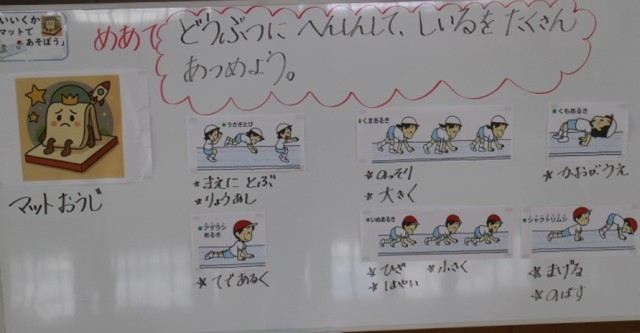 いいくか
マットで
あそぼう」
めあて
どうぶつに へんしんして、しいるを たくさん
あつめよう。
マットおうじ
★うさぎとび
★まえに とぶ
★りょうあし
★くまあるき
★のっそり
★大きく
★くもあるき
★かおがうえ
★アザラシ
あるき
★てであるく
★いぬあるき
★ひざ ★小さく
★はやい
★シャクトリムシ
★まげる
★のばす